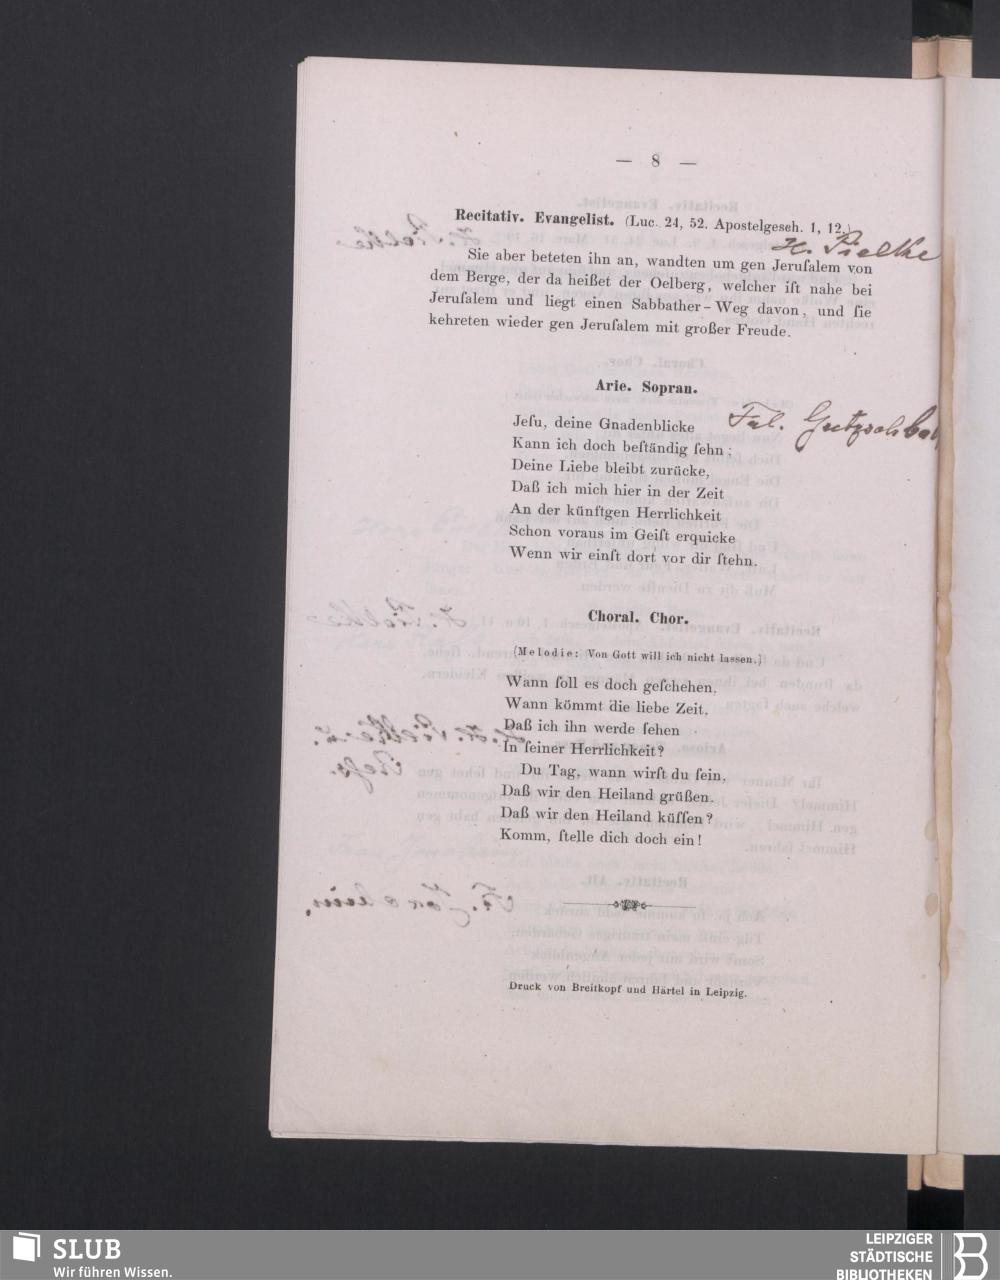 — 8 —
Recitativ. Evangelist. (Luc. 24, 52. Apostelgesch. 1, 12.)
H. Pielke
Sie aber beteten ihn an, wandten um gen Jeruſalem von
dem Berge, der da heißet der Oelberg, welcher iſt nahe bei
Jeruſalem und liegt einen Sabbather-Weg davon, und ſie
kehreten wieder gen Jeruſalem mit großer Freude.
Arie. Sopran.
Jeſu, deine Gnadenblicke
Kann ich doch beſtändig ſehn;
Deine Liebe bleibt zurücke,
Daß ich mich hier in der Zeit
An der künftgen Herrlichkeit
Schon voraus im Geiſt erquicke
Wenn wir einſt dort vor dir ſtehn.
Choral. Chor.
(Melodie: Von Gott will ich nicht lassen.)
Wann ſoll es doch geſchehen,
Wann kömmt die liebe Zeit,
Daß ich ihn werde ſehen
In ſeiner Herrlichkeit?
Du Tag, wann wirſt du ſein,
Daß wir den Heiland grüßen,
Daß wir den Heiland küſſen?
Komm, ſtelle dich doch ein!
Druck von Breitkopf und Härtel in Leipzig.
SLUB
Wir führen Wissen.
LEIPZIGER
STÄDTISCHE
BIBLIOTHEKEN